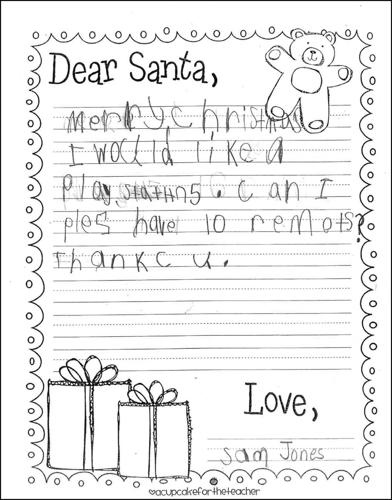 Dear Santa,
merry christmas
I woclld like a
Play stathn5. can I
ples have 10 remots?
thankc u.
Love,
Sam Jones
acupcakefortheteacher